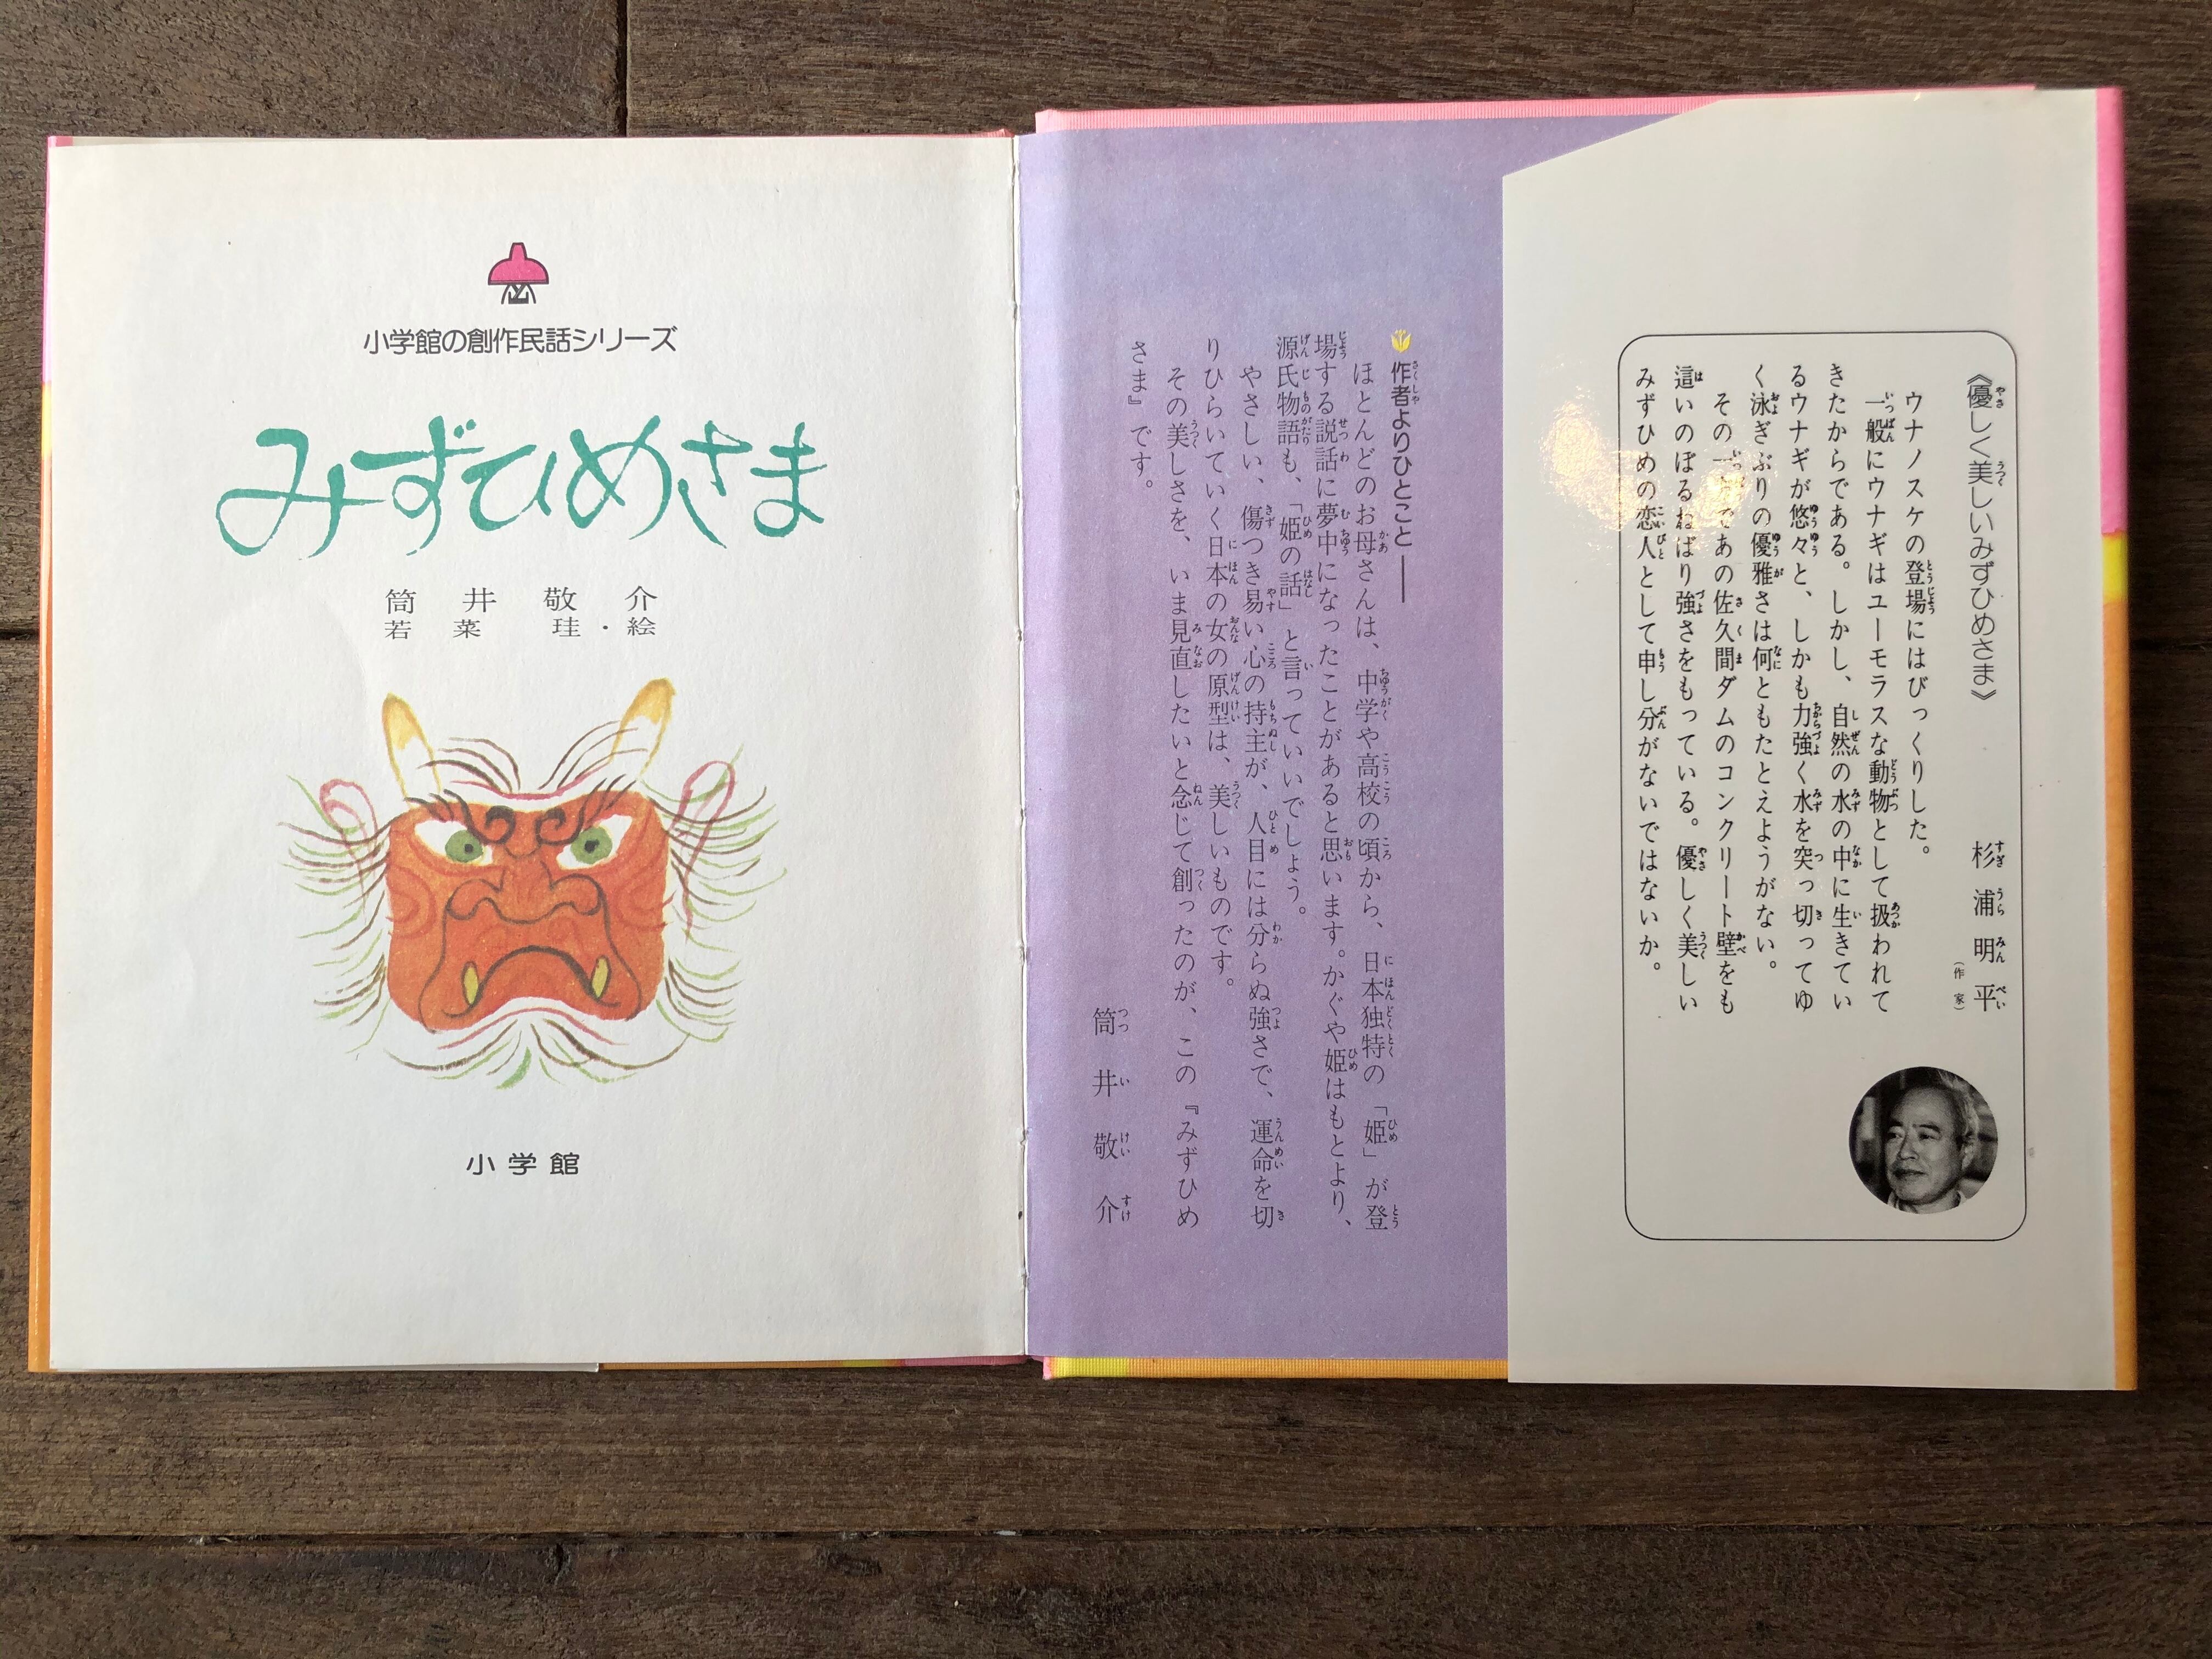 《優しく美しいみずひめさま》
杉浦明平
（作家）
ウナノスケの登場にはびっくりした。
一般にウナギはユーモラスな動物として扱われて
きたからである。しかし、自然の水の中に生きてい
るウナギが悠々と、しかも力強く水を突っ切ってゆ
く泳ぎぶりの優雅さは何ともたとえようがない。
その一 であの佐久間ダムのコンクリート壁をも
這いのぼるねばり強さをもっている。優しく美しい
みずひめの恋人として申し分がないではないか。
作者よりひとこと――
ほとんどのお母さんは、中学や高校の頃から、日本独特の「姫」が登
場する説話に夢中になったことがあると思います。かぐや姫はもとより、
源氏物語も、「姫の話」と言っていいでしょう。
やさしい、傷つき易い心の持主が、人目には分らぬ強さで、運命を切
りひらいていく日本の女の原型は、美しいものです。
その美しさを、いま見直したいと念じて創ったのが、この『みずひめ
さま』です。
筒井敬介
小学館の創作民話シリーズ
みずひめさま
筒井敬介
若菜珪・絵
小学館